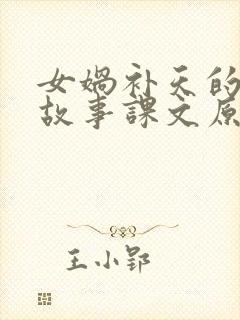 女娲补天的
故事课文原
王小郢